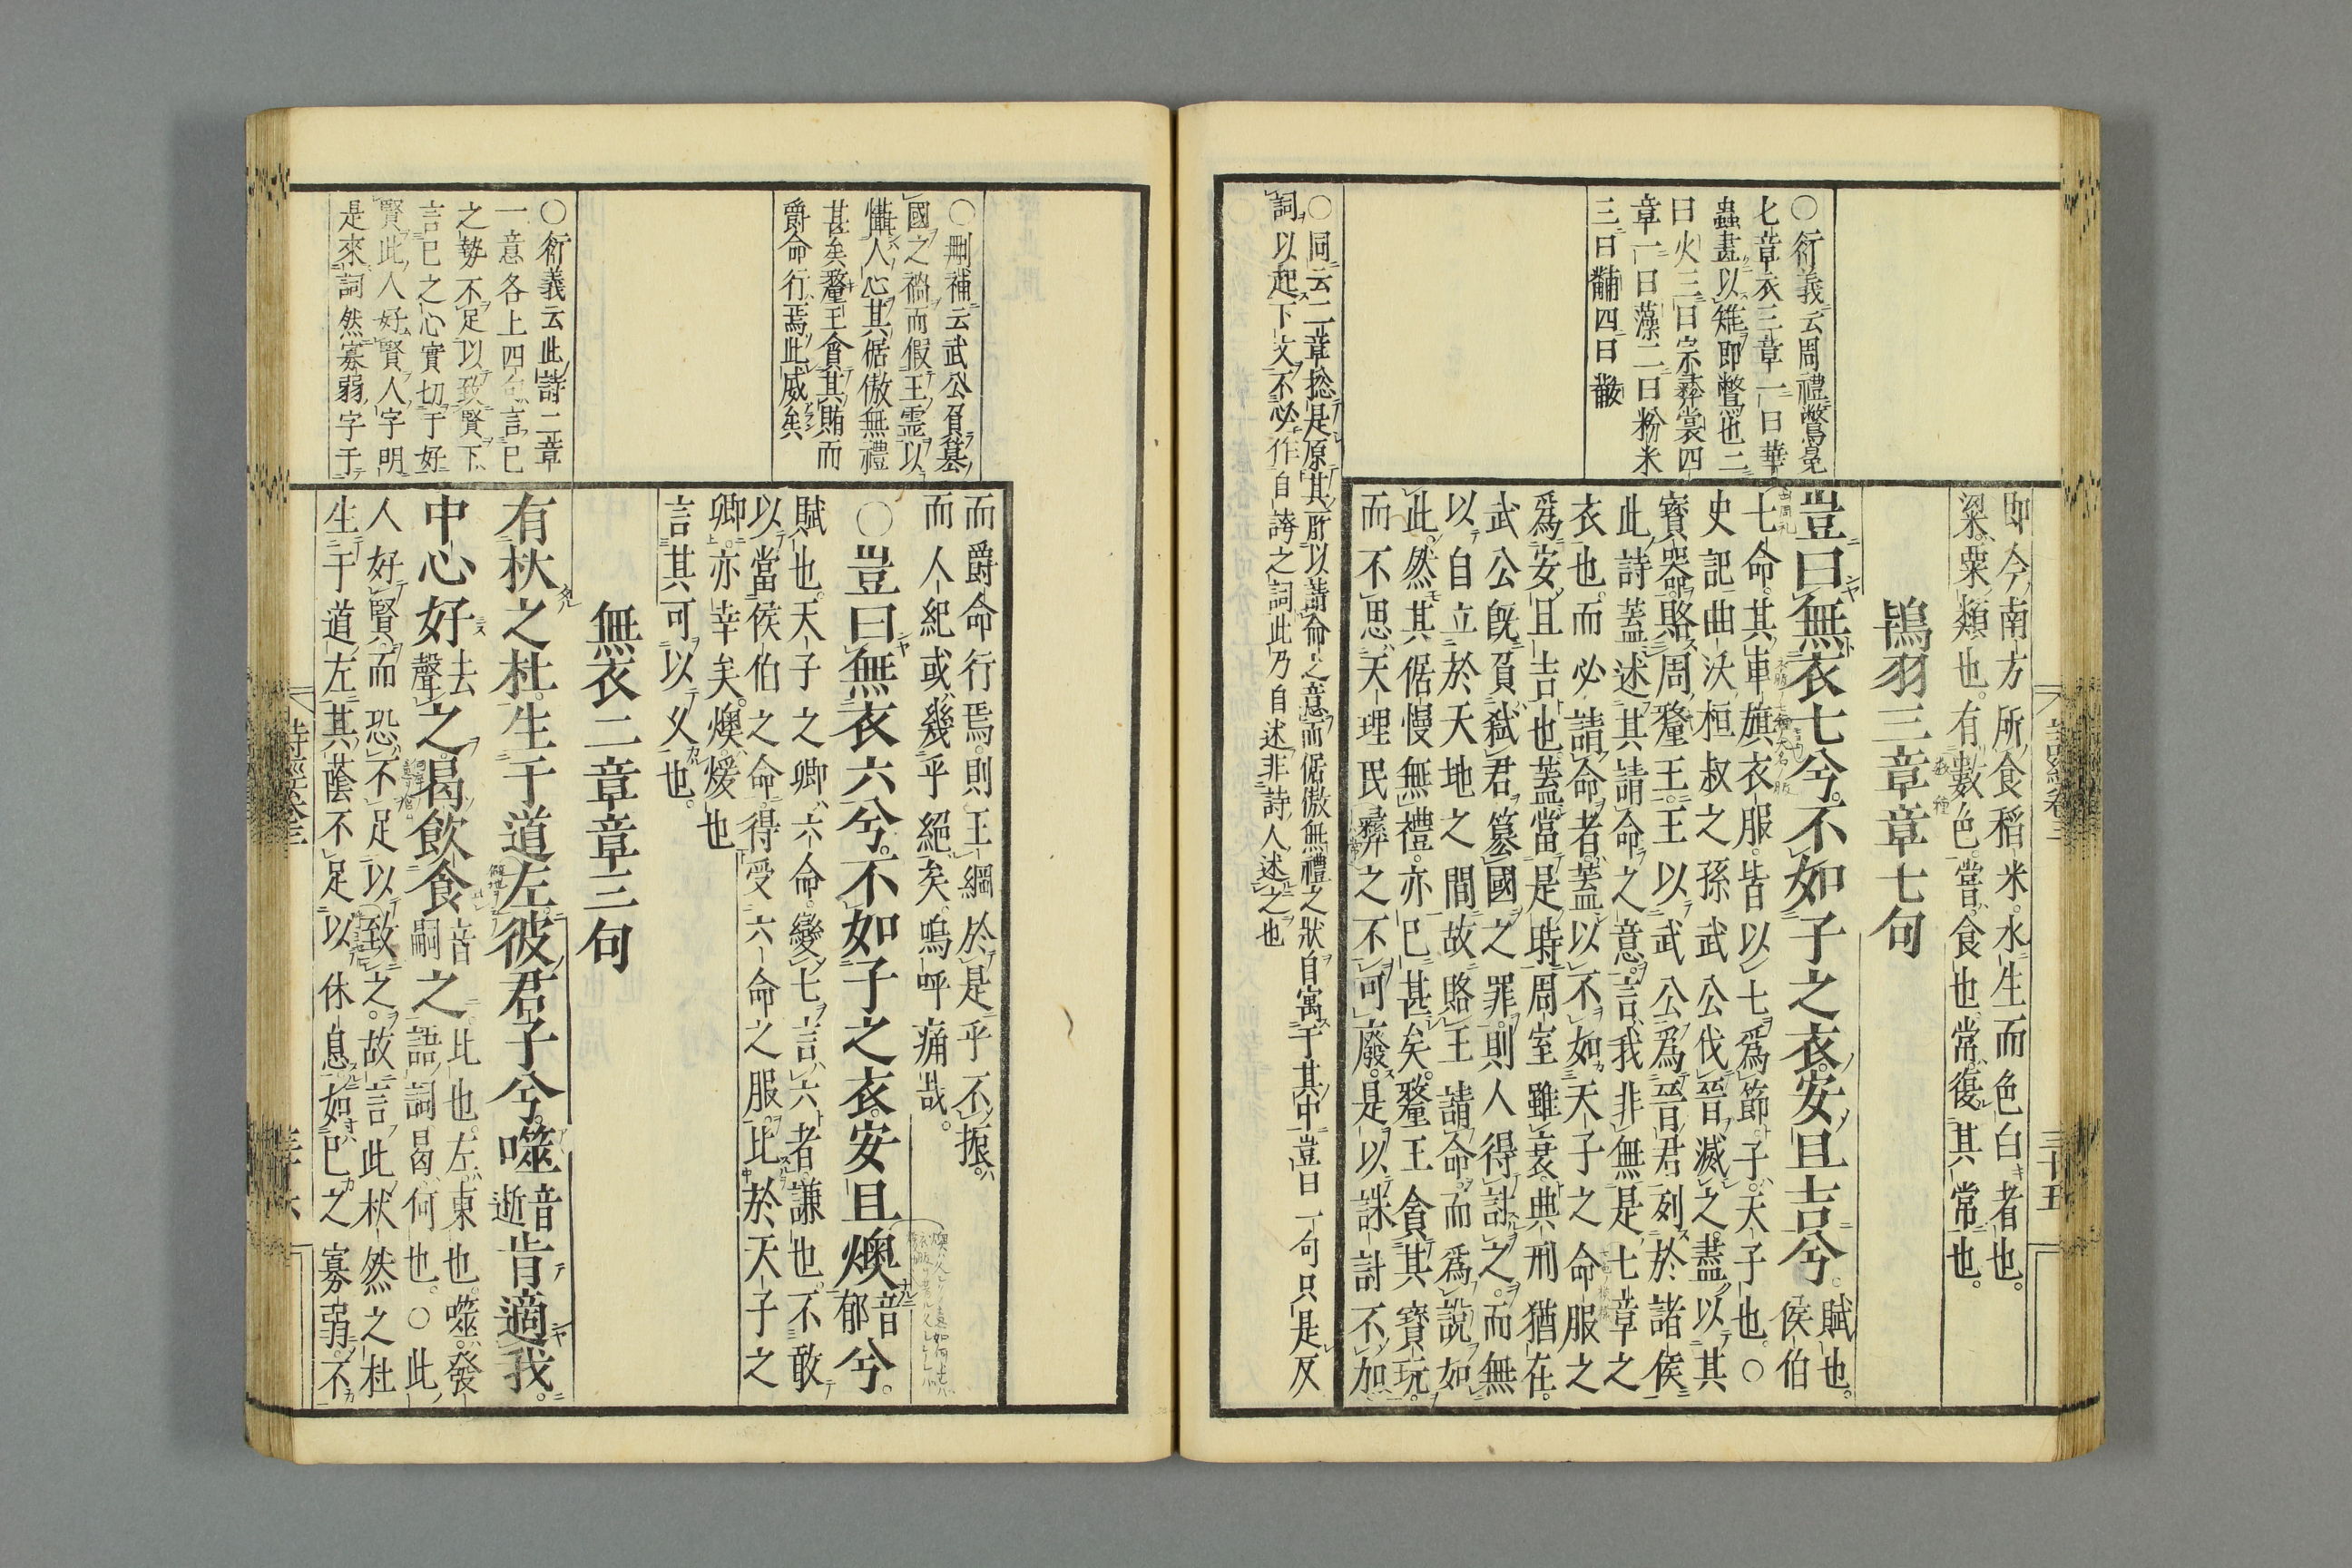 即今南方所食稻米。水生而色白者也。
粱。粟類也。有數色。嘗。食也。常。復其常也。
鴇羽三章章七句
豈曰無衣七兮。不如子之衣。安且吉兮。賦也。侯伯
七命。其車旗衣服。皆以七爲節。子。天子也。○
史記曲沃桓叔之孫武公伐晉滅之。盡以其
寶器。賂周釐王。王以武公爲晉君。列於諸侯
此詩蓋述其請命之意。言我非無是七章之
衣也。而必請命者。蓋以不如天子之命服之
爲安且吉也。蓋當是時。周室雖衰。典刑猶在。
武公旣負弑君簒國之罪。則人得討之。而無
以自立於天地之間。故賂王請命。而爲說如
此。然其倨慢無禮。亦已甚矣。釐王貪其寶玩。
而不思天理民彝之不可廢。是以誅計不加
○衍義云周禮鷩冕
七章衣三章一曰華
蟲畫以雉即鷩也二
曰火三曰宗彝裳四
章一曰藻二曰粉米
三曰黼四曰黻
○同云二章揔是原其所以請命之意而倨傲無禮之狀自寓于其中豈曰一句只是反
詞以起下文不必作自誇之詞此乃自述非詩人述之也
詩經卷三
三十五
而爵命行焉。則王綱於是乎不振。
而人紀或幾乎絕矣。嗚呼痛哉。
○豈曰無衣六兮。不如子之衣。安且燠音郁兮。
賦也。天子之卿六命。變七言六者。謙也。不敢
以當侯伯之命。得受六命之服。比於天子之
卿。亦幸矣。燠。煖也
言其可以久也。
無衣二章章三句
有杕之杜。生于道左。彼君子兮。噬音逝肯適我。
中心好去聲之。曷飲食音嗣之 比也。左。東也。噬。發
語詞。曷。何也。○此
人好賢。而恐不足以致之。故言此杕然之杜
生于道左。其蔭不足以休息。如己之寡弱。不
○刪補云武公負簒
國之禍而假王霊以
懾人心其倨傲無禮
甚矣釐王貪其賄而
爵命行焉此威矣
○衍義云此詩二章
一意各上四句言已
之勢不足以致賢下
言已之心實切于好
賢此人好賢人字明
是來詞然寡弱字于